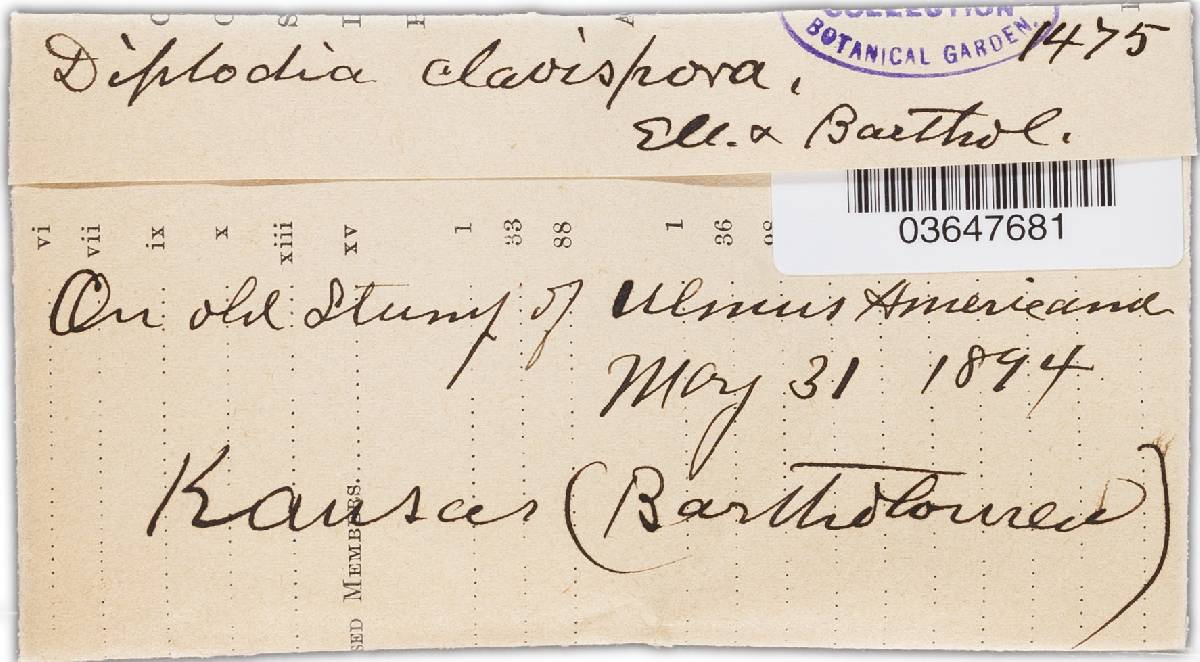 COLLECTION
BOTANICAL GARDEN
Diplodia clavispora, 1475
Ell. & Barthol.
03647681
vi vii ix x xiii xv 1 33 88 1 36
On old Stump of Ulmus Americana
May 31 1894
Kansas (Bartholomew)
SED MEMBRES.